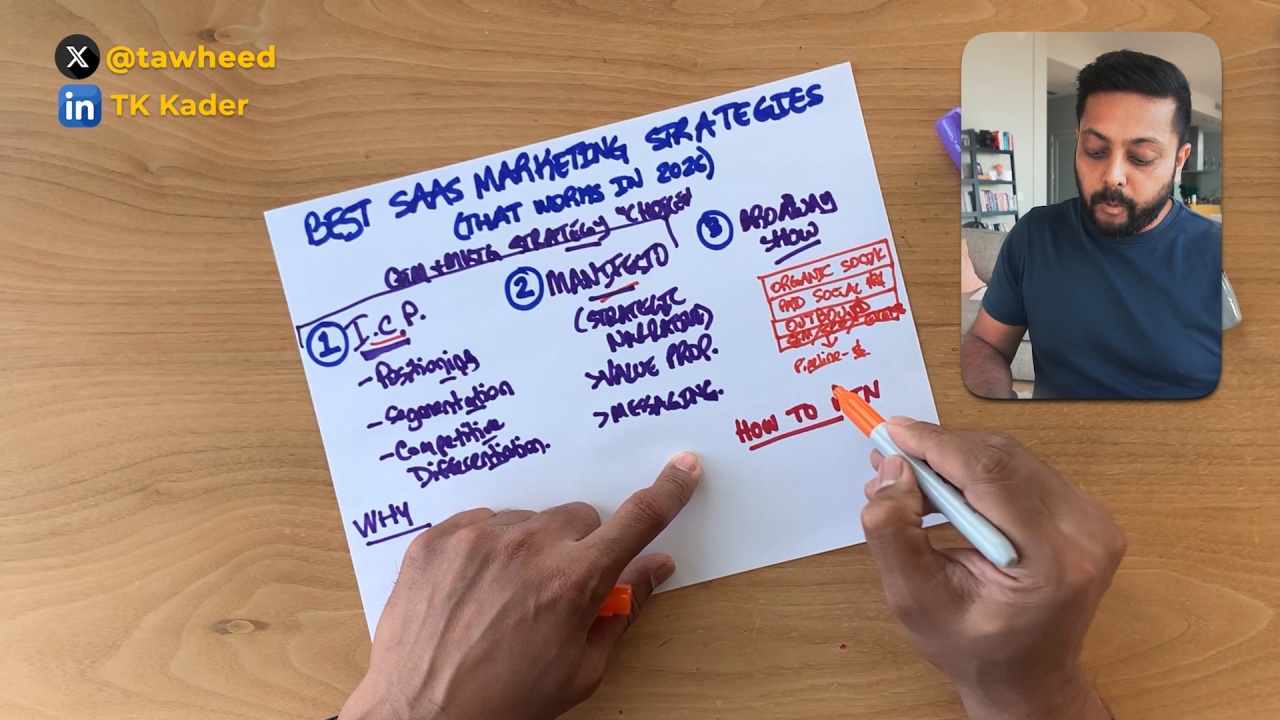 @tawheed
in TK Kader
BEST SAAS MARKETING STRATEGIES
(THAT WORKS IN 2026)
GTM + MKTG STRATEGY "CHOICES"
1 I.C.P.
- Positioning
- Segmentation
- Competitive
Differentiation.
WHY
2 MANIFESTO
(STRATEGIC
NARRATIVE)
> VALUE PROP.
> MESSAGING.
3 BROADWAY
SHOW
ORGANIC SOCIAL
PAID SOCIAL
OUTBOUND
Pipeline - $
HOW TO WIN